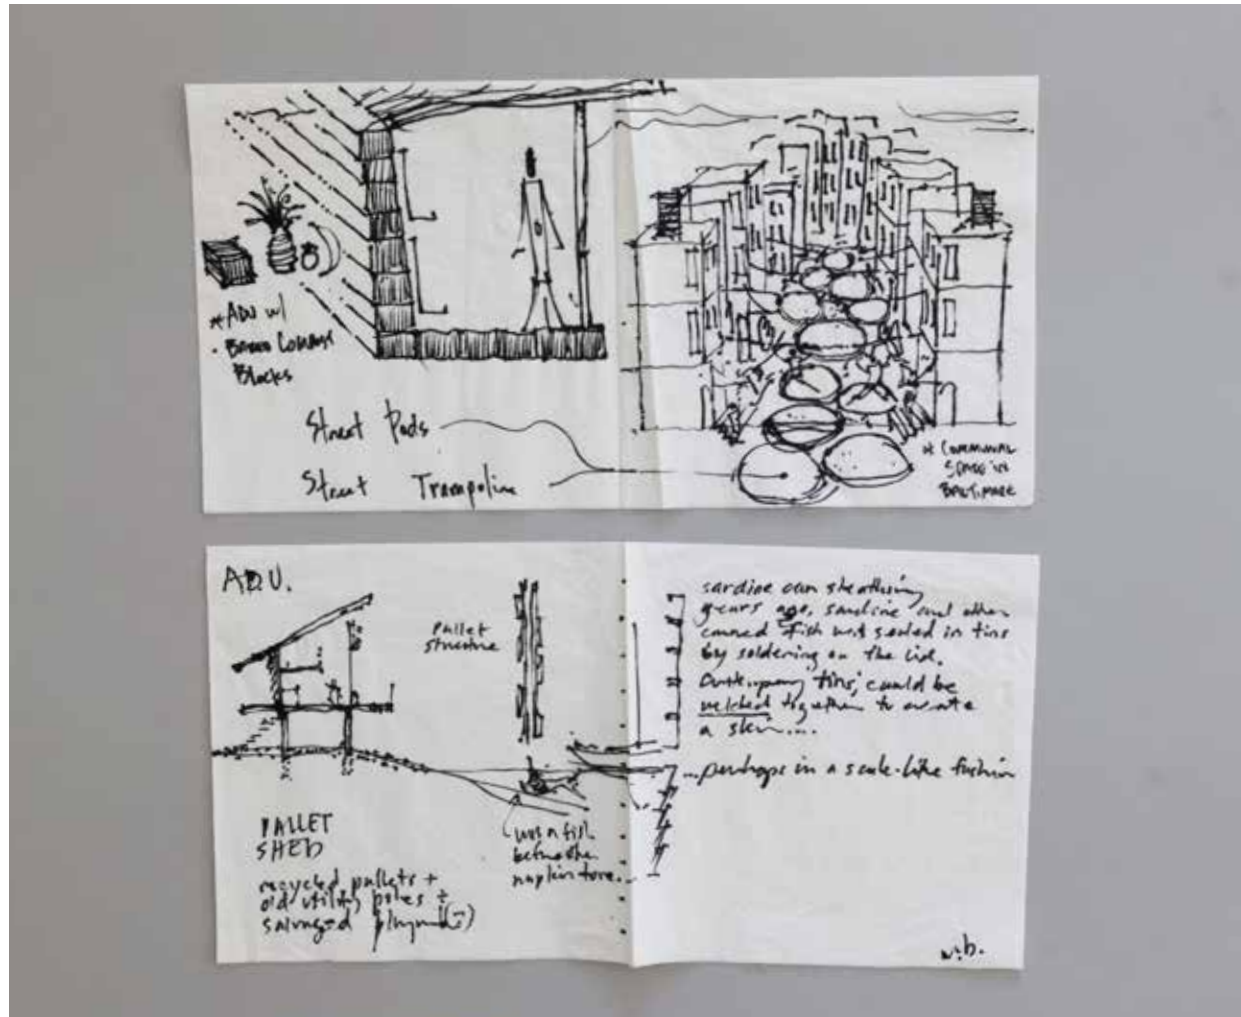 * ADU w/
• Baked Compost
Blocks
Street Pods
Street Trampoline
* Communal
Space in
Baltimore
ADU.
pallet
structure
PALLET
SHED
recycled pallets +
old utility poles +
salvaged plywood(?)
was a fish
before the
napkin tore.
sardine can sheathing
years ago, sardine and other
canned fish was sealed in tins
by soldering on the lid.
contemporary 'tins' could be
welded together to create
a skin....
...perhaps in a scale-like fashion
w.b.